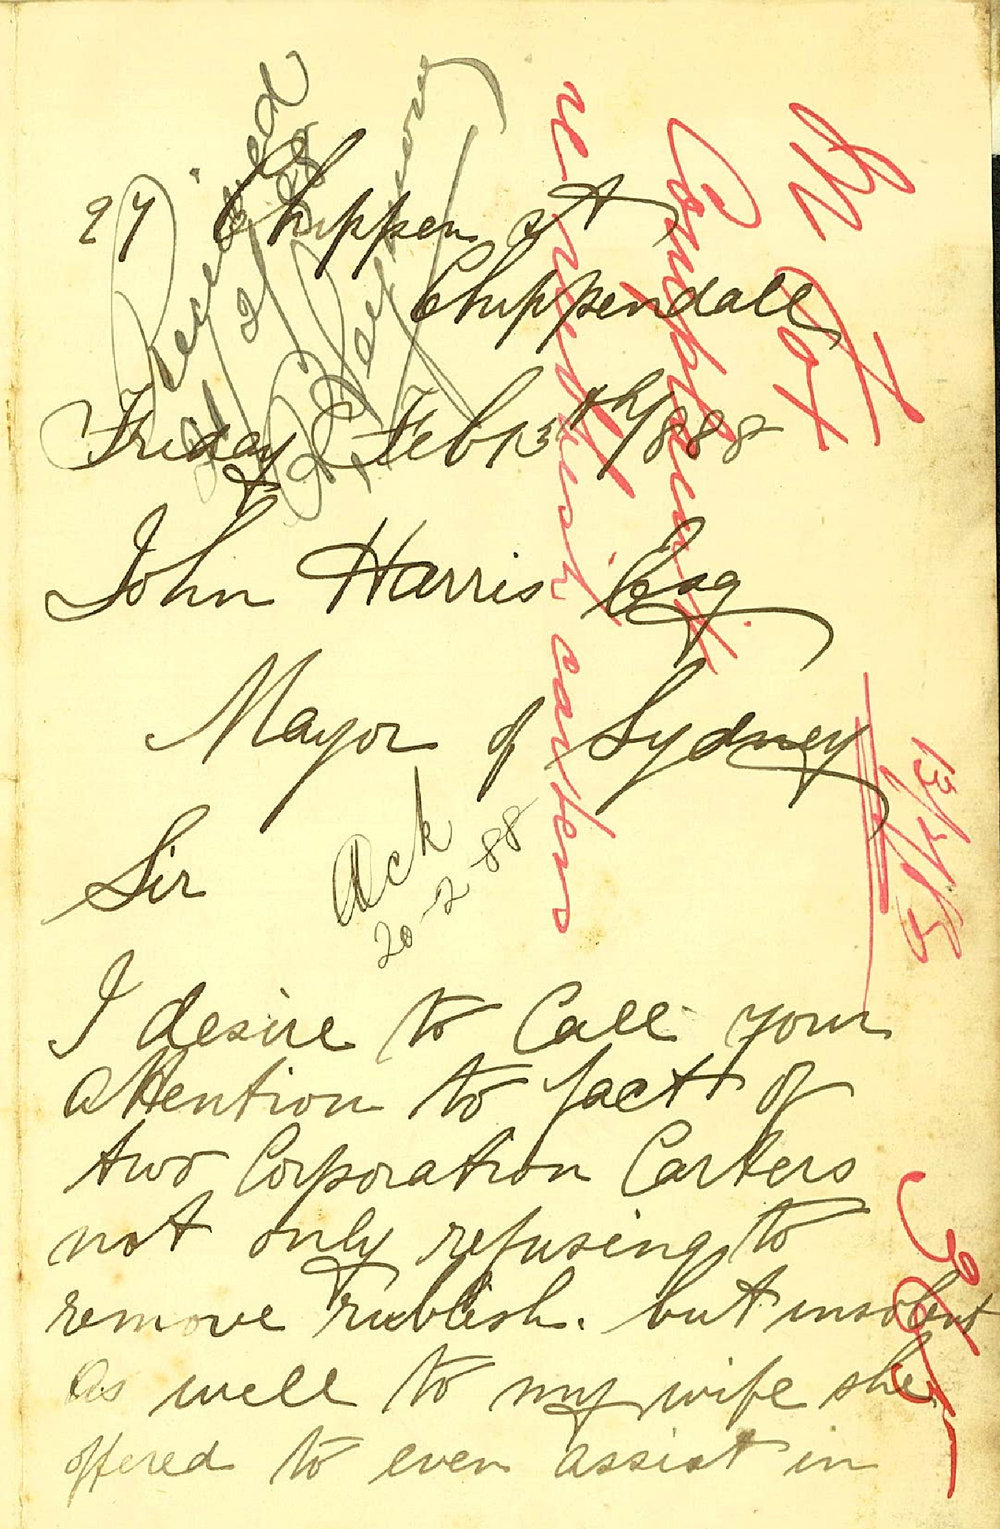 27 Chippen St
Chippendall
Friday Feb 13th/1888
John Harris Esq
Mayor of Sydney
Sir
I desire to Call your
attention to fact of
two Corporation Carters
not only refusing to
remove rubbish. but insolent
as well to my wife she
offered to even assist in
Received
Ack
20-2-88
Fox
Complaint
re rubbish carters